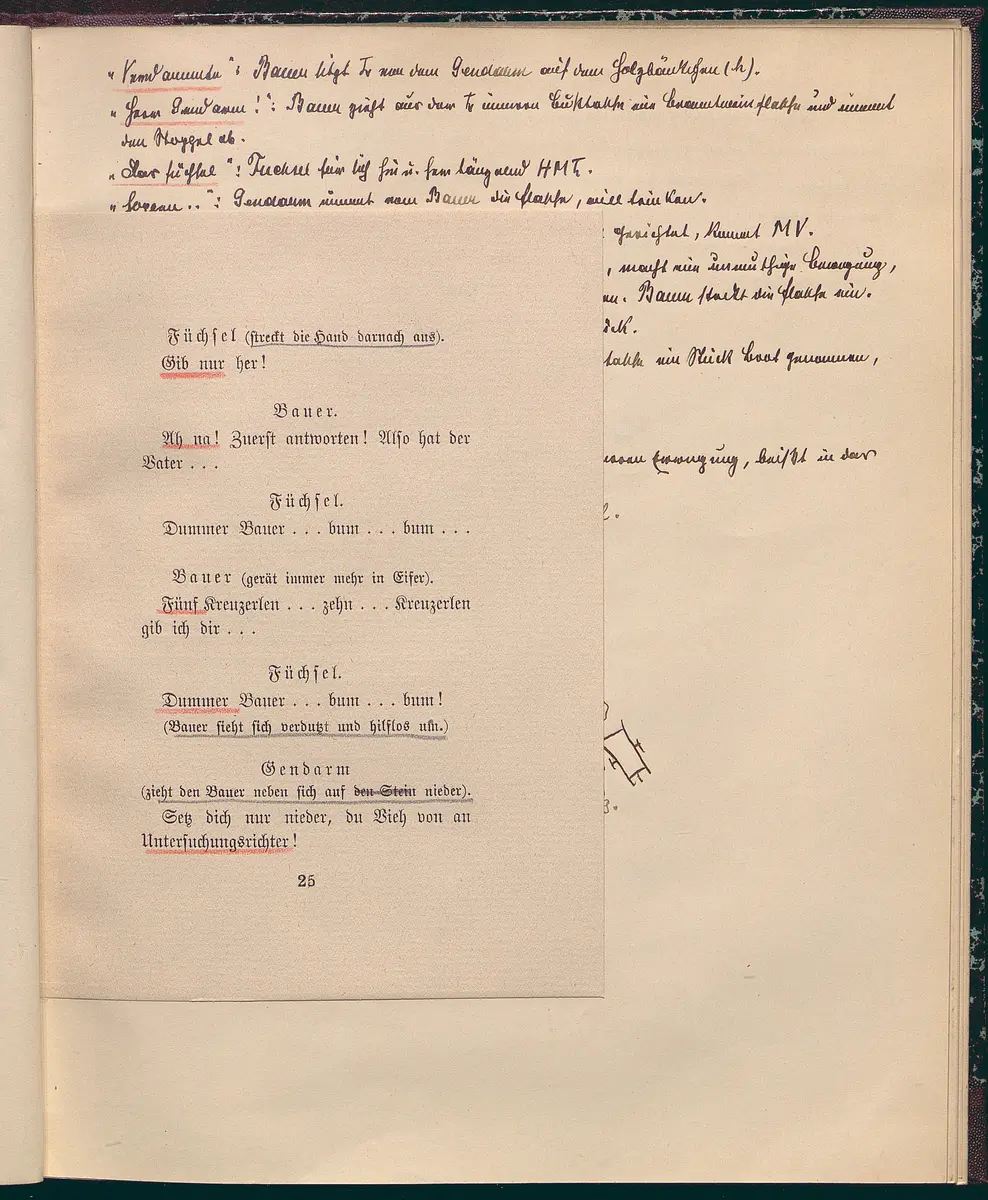 „Verdammte“: Bauer sitzt Tr von dem Gendarm auf dem Holzbänkchen (h).
„Herr Gendarm!“: Bauer zieht aus der Tr inneren Busttasche eine Branntweinflasche und nimmt
den Stoppel ab.
„Das Füchsel“: Füchsel für sich hin u. her tänzelnd HMT.
„Lorenn..“: Gendarm nimmt vom Bauer die Flasche, will trinken.
gerichtet, kommt MV.
, macht eine unmuthige Bewegung,
en. Bauer steckt die Flasche ein.
ck.
tasche ein Stück Brot genommen,
Bewegung, beißt in das
Füchsel (streckt die Hand darnach aus).
Gib nur her!
Bauer.
Ah na! Zuerst antworten! Also hat der
Vater . . .
Füchsel.
Dummer Bauer . . . bum . . . bum . . .
Bauer (gerät immer mehr in Eifer).
Fünf Kreuzerlen . . . zehn . . . Kreuzerlen
gib ich dir . . .
Füchsel.
Dummer Bauer . . . bum . . . bum!
(Bauer sieht sich verdutzt und hilflos um.)
Gendarm
(zieht den Bauer neben sich auf den Stein nieder).
Setz dich nur nieder, du Vieh von an
Untersuchungsrichter!
25